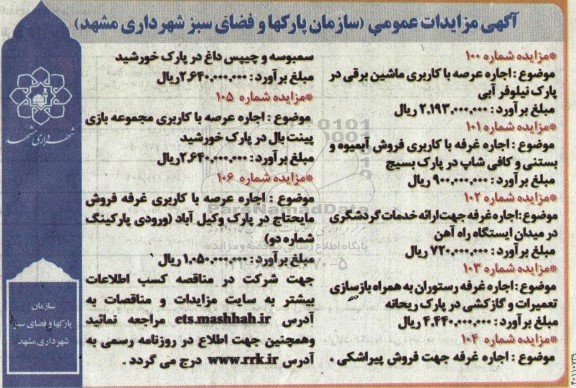 آگهی مزایدات عمومی (سازمان پارکها و فضای سبز شهرداری مشهد)
*مزایده شماره ۱۰۰
موضوع : اجاره عرصه با کاربری ماشین برقی در
پارک نیلوفر آبی
مبلغ برآورد : ۲.۱۹۳.۰۰۰.۰۰۰ ریال
*مزایده شماره ۱۰۱
موضوع : اجاره غرفه با کاربری فروش آبمیوه و
بستنی و کافی شاپ در پارک بسیج
مبلغ برآورد : ۹۰۰.۰۰۰.۰۰۰ ریال
*مزایده شماره ۱۰۲
موضوع: اجاره غرفه جهت ارائه خدمات گردشگری
در میدان ایستگاه راه آهن
مبلغ برآورد : ۷۲۰.۰۰۰.۰۰۰ ریال
*مزایده شماره ۱۰۳
موضوع : اجاره غرفه رستوران به همراه بازسازی
تعمیرات و گازکشی در پارک ریحانه
مبلغ برآورد : ۴.۴۴۰.۰۰۰.۰۰۰ ریال
*مزایده شماره ۱۰۴
موضوع : اجاره غرفه جهت فروش پیراشکی ،
سمبوسه و چیپس داغ در پارک خورشید
مبلغ برآورد : ۲.۶۴۰.۰۰۰.۰۰۰ ریال
*مزایده شماره ۱۰۵
موضوع : اجاره عرصه با کاربری مجموعه بازی
پینت بال در پارک خورشید
مبلغ برآورد : ۲.۶۴۰.۰۰۰.۰۰۰ ریال
*مزایده شماره ۱۰۶
موضوع : اجاره عرصه با کاربری غرفه فروش
مایحتاج در پارک وکیل آباد (ورودی پارکینگ
شماره دو)
مبلغ برآورد : ۱.۰۵۰.۰۰۰.۰۰۰ ریال
جهت شرکت در مناقصه کسب اطلاعات
بیشتر به سایت مزایدات و مناقصات به
آدرس ets.mashhah.ir مراجعه نمائید
وهمچنین جهت اطلاع در روزنامه رسمی به
آدرس www.rrk.ir درج می گردد .
شهرداری مشهد
سازمان
پارکها و فضای سبز
شهرداری مشهد